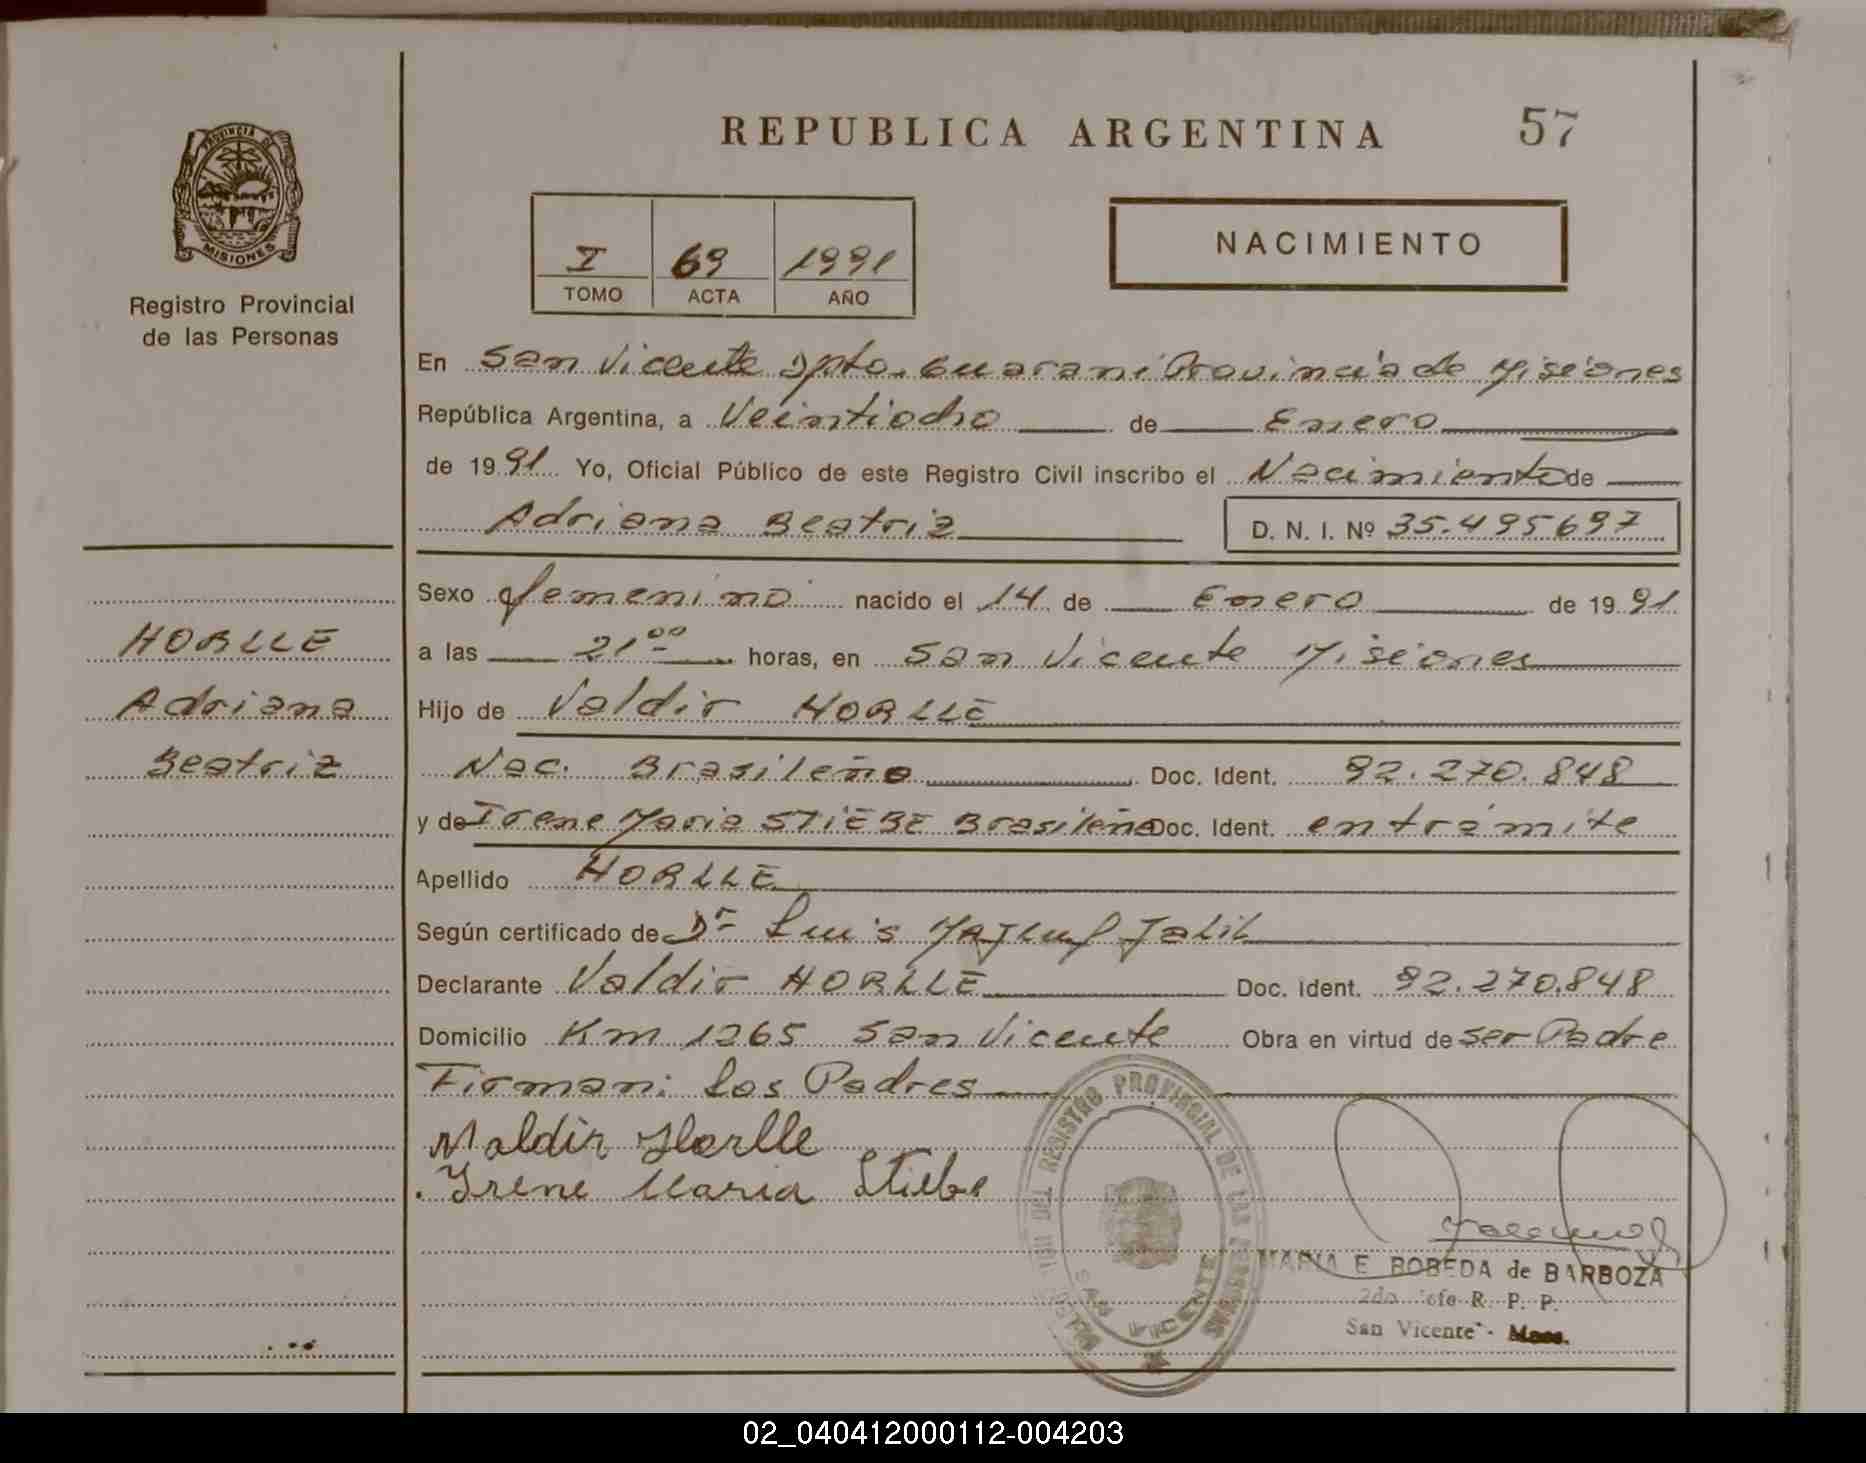 REPUBLICA ARGENTINA
57
PROVINCIA DE
MISIONES
Registro Provincial
de las Personas
I 69 1991
TOMO ACTA AÑO
NACIMIENTO
En San Vicente Dpto. Guarani Provincia de Misiones
República Argentina, a Veintiocho de Enero
de 1991 Yo, Oficial Público de este Registro Civil inscribo el Nacimiento de
Adriana Beatriz D. N. I. Nº 35.495697
Sexo femenino nacido el 14 de Enero de 1991
a las 21⁰⁰ horas, en San Vicente Misiones
Hijo de Valdir HORLLE
Nac. Brasileño Doc. Ident. 92.270.848
y de Irene Maria STIEBE Brasileña Doc. Ident. en trámite
Apellido HORLLE
Según certificado de Dr Luis Jalil
Declarante Valdir HORLLE Doc. Ident. 92.270.848
Domicilio Km 1265 San Vicente Obra en virtud de ser Padre
Firman: Los Padres
Valdir Horlle
Irene Maria Stiebe
HORLLE
Adriana
Beatriz
DEL REGISTRO PROVINCIAL DE LAS PERSONAS
SAN VICENTE
MARIA E. BOBEDA de BARBOZA
2do Jefe R. P. P.
San Vicente - Mnes.
02_040412000112-004203